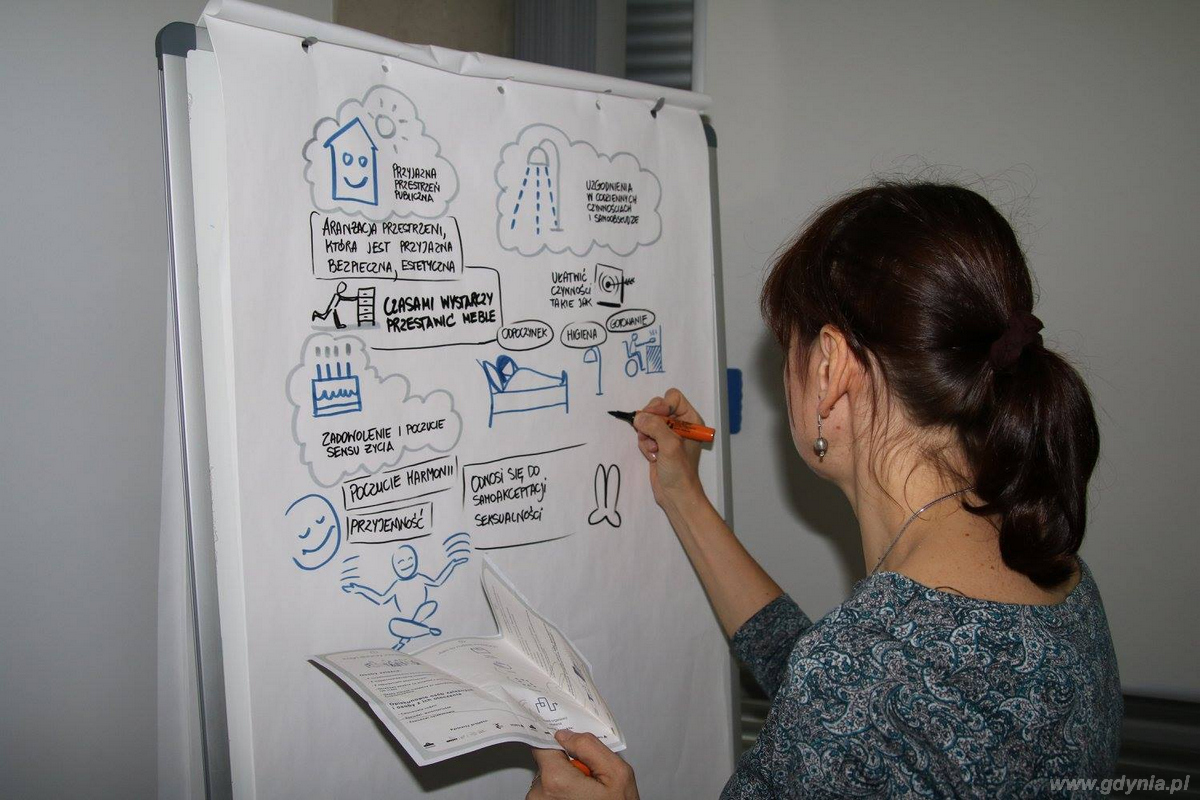 PRZYJAZNA
PRZESTRZEŃ
PUBLICZNA
UZGODNIENIA
W CODZIENNYCH
CZYNNOŚCIACH
I SAMOOBSŁUDZE
ARANŻACJA PRZESTRZENI,
KTÓRA JEST PRZYJAZNA
BEZPIECZNA, ESTETYCZNA
CZASAMI WYSTARCZY
PRZESTAWIĆ MEBLE
UŁATWIĆ
CZYNNOŚCI
TAKIE JAK
ODPOCZYNEK
HIGIENA
GOTOWANIE
ZADOWOLENIE I POCZUCIE
SENSU ŻYCIA
POCZUCIE HARMONII
PRZYJEMNOŚĆ
ODNOSI SIĘ DO
SAMOAKCEPTACJI
SEKSUALNOŚCI
www.gdynia.pl